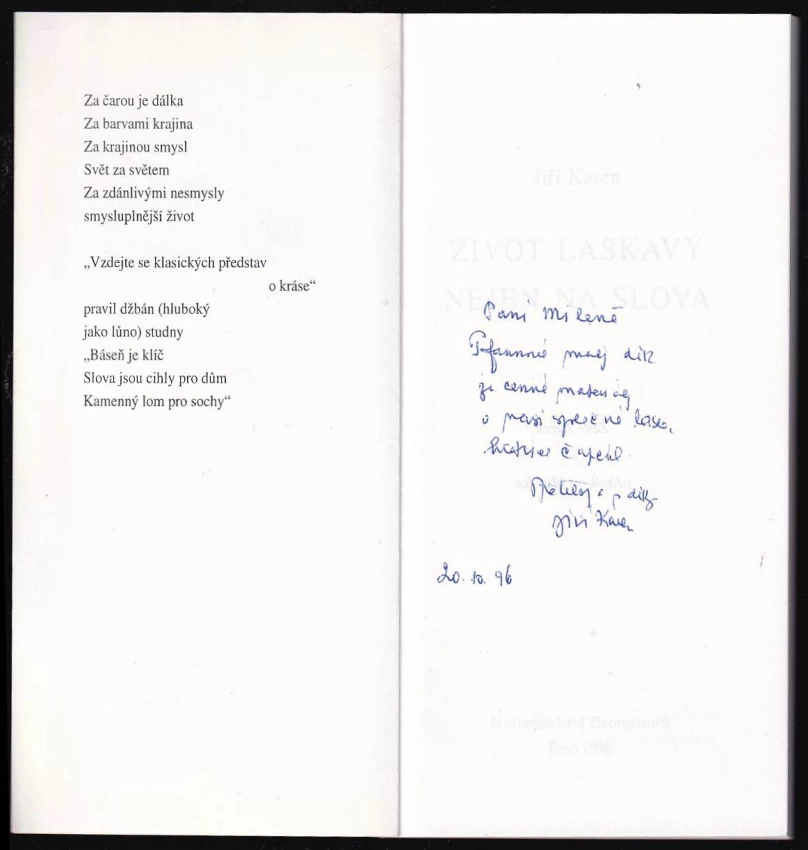 Za čarou je dálka
Za barvami krajina
Za krajinou smysl
Svět za světem
Za zdánlivými nesmysly
smysluplnější život
„Vzdejte se klasických představ
o kráse“
pravil džbán (hluboký
jako lůno) studny
„Báseň je klíč
Slova jsou cihly pro dům
Kamenný lom pro sochy“
Jiří Karen
ŽIVOT LASKAVÝ
NEJEN NA SLOVA
Paní Mileně
můj dík
za cenné
o naší společné
Jiří Karen
20. 10. 96
Nakladatelství Georgetown
Brno 1996